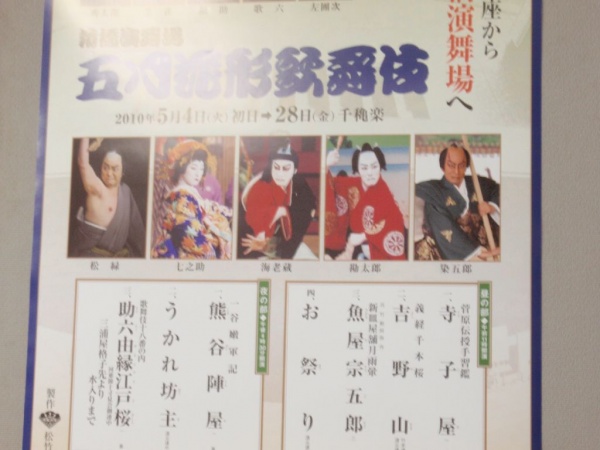 座から
演舞場へ
六 左團次
五月花形歌舞伎
2010年5月4日(火)初日➡28日(金)千穐楽
松緑
七之助
海老蔵
勘太郎
染五郎
昼の部
菅原伝授手習鑑
一、寺子屋
義経千本桜
二、吉野山
新皿屋舗月雨暈
三、魚屋宗五郎
四、お祭り
夜の部
一谷嫩軍記
一、熊谷陣屋
二、うかれ坊主
歌舞伎十八番の内
三、助六由縁江戸桜
三浦屋格子先より
水入りまで
製作
松竹